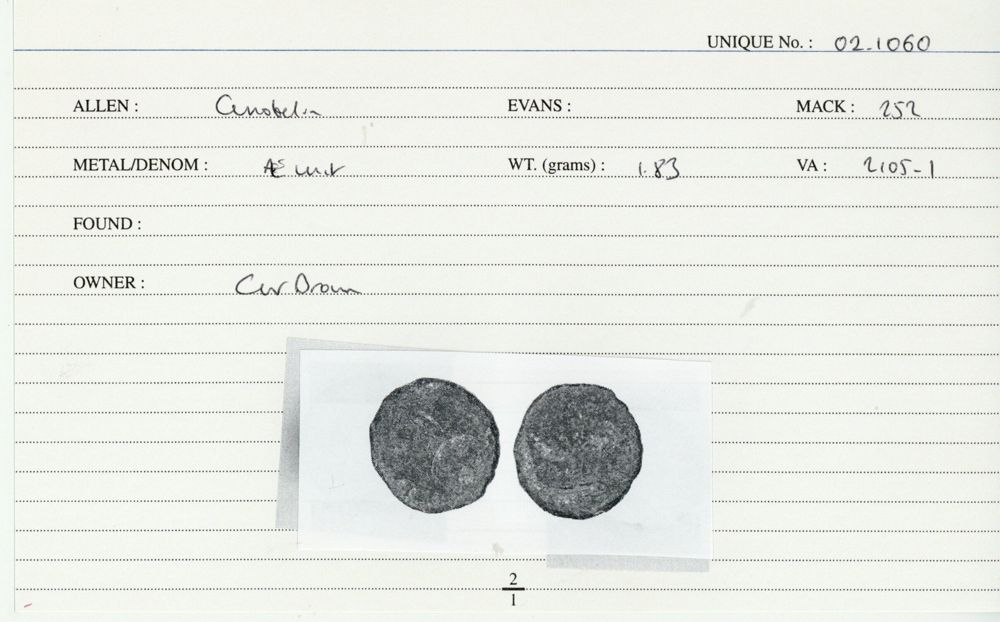 UNIQUE No. : 02.1060
ALLEN : Cunobelin EVANS : MACK : 252
METAL/DENOM : Æ unit WT. (grams) : 1.83 VA : 2105-1
FOUND :
OWNER :
2
1